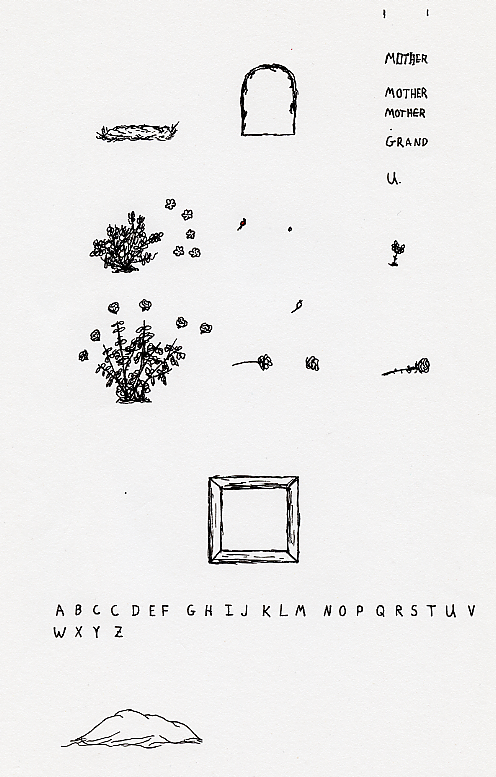 MOTHER
MOTHER
MOTHER
GRAND
U.
A B C C D E F G H I J K L M N O P Q R S T U V
W X Y Z